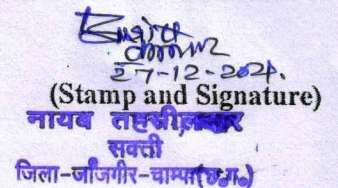 27-12-2021.
(Stamp and Signature)
नायब तहसीलदार
सक्ती
जिला-जाँजगीर-चाम्पा(छ.ग.)